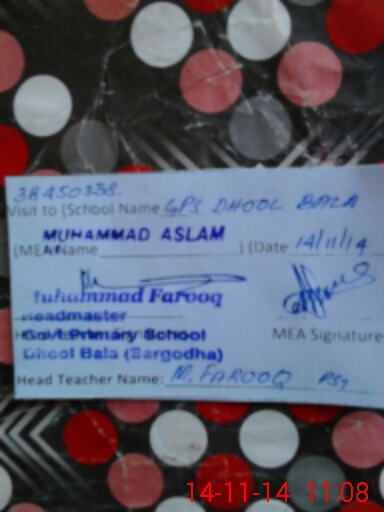 38450338.
Visit to (School Name GPS DHOOL BALA
MUHAMMAD ASLAM
(MEA Name ) (Date 14/11/14
Muhammad Farooq
Headmaster
Govt Primary School
MEA Signature
Dhool Bala (Sargodha)
Head Teacher Name: M. FAROOQ PST
14-11-14 11:08